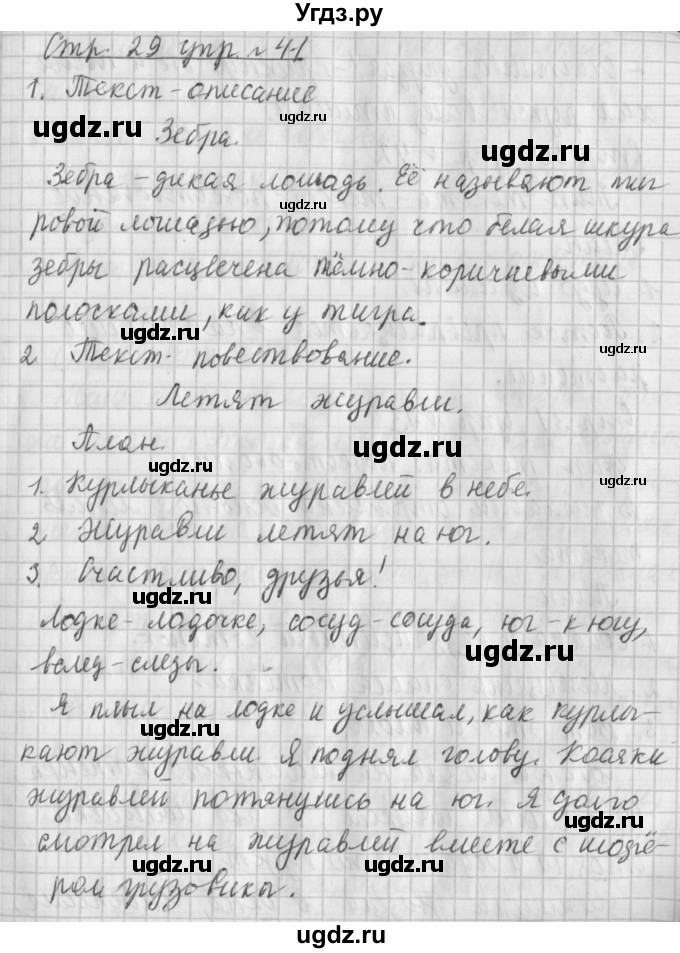 Угдз.ру
Стр. 29 упр. 41
1. Текст - описание
ugdz.ru
ugdz.ru Зебра.
ugdz.ru
Зебра - дикая лошадь. Её называют тиг
ugdz.ru
ровой лошадью, потому что белая шкура
зебры расцвечена тёмно-коричневыми
полосками, как у тигра.
ugdz.ru
ugdz.ru
2. Текст - повествование.
Летят журавли.
План.
ugdz.ru
ugdz.ru
1. Курлыканье журавлей в небе.
ugdz.ru
2. Журавли летят на юг.
3. Счастливо, друзья!
ugdz.ru
Лодке - лодочке, сосуд - сосуда, юг - к югу,
ugdz.ru
вслед - следы.
Я плыл на лодке и услышал, как курлы-
ugdz.ru
кают журавли. Я поднял голову. Косяки
журавлей потянулись на юг. Я долго
ugdz.ru
смотрел на журавлей вместе с
ugdz.ru
ром грузовика.
ugdz.ru